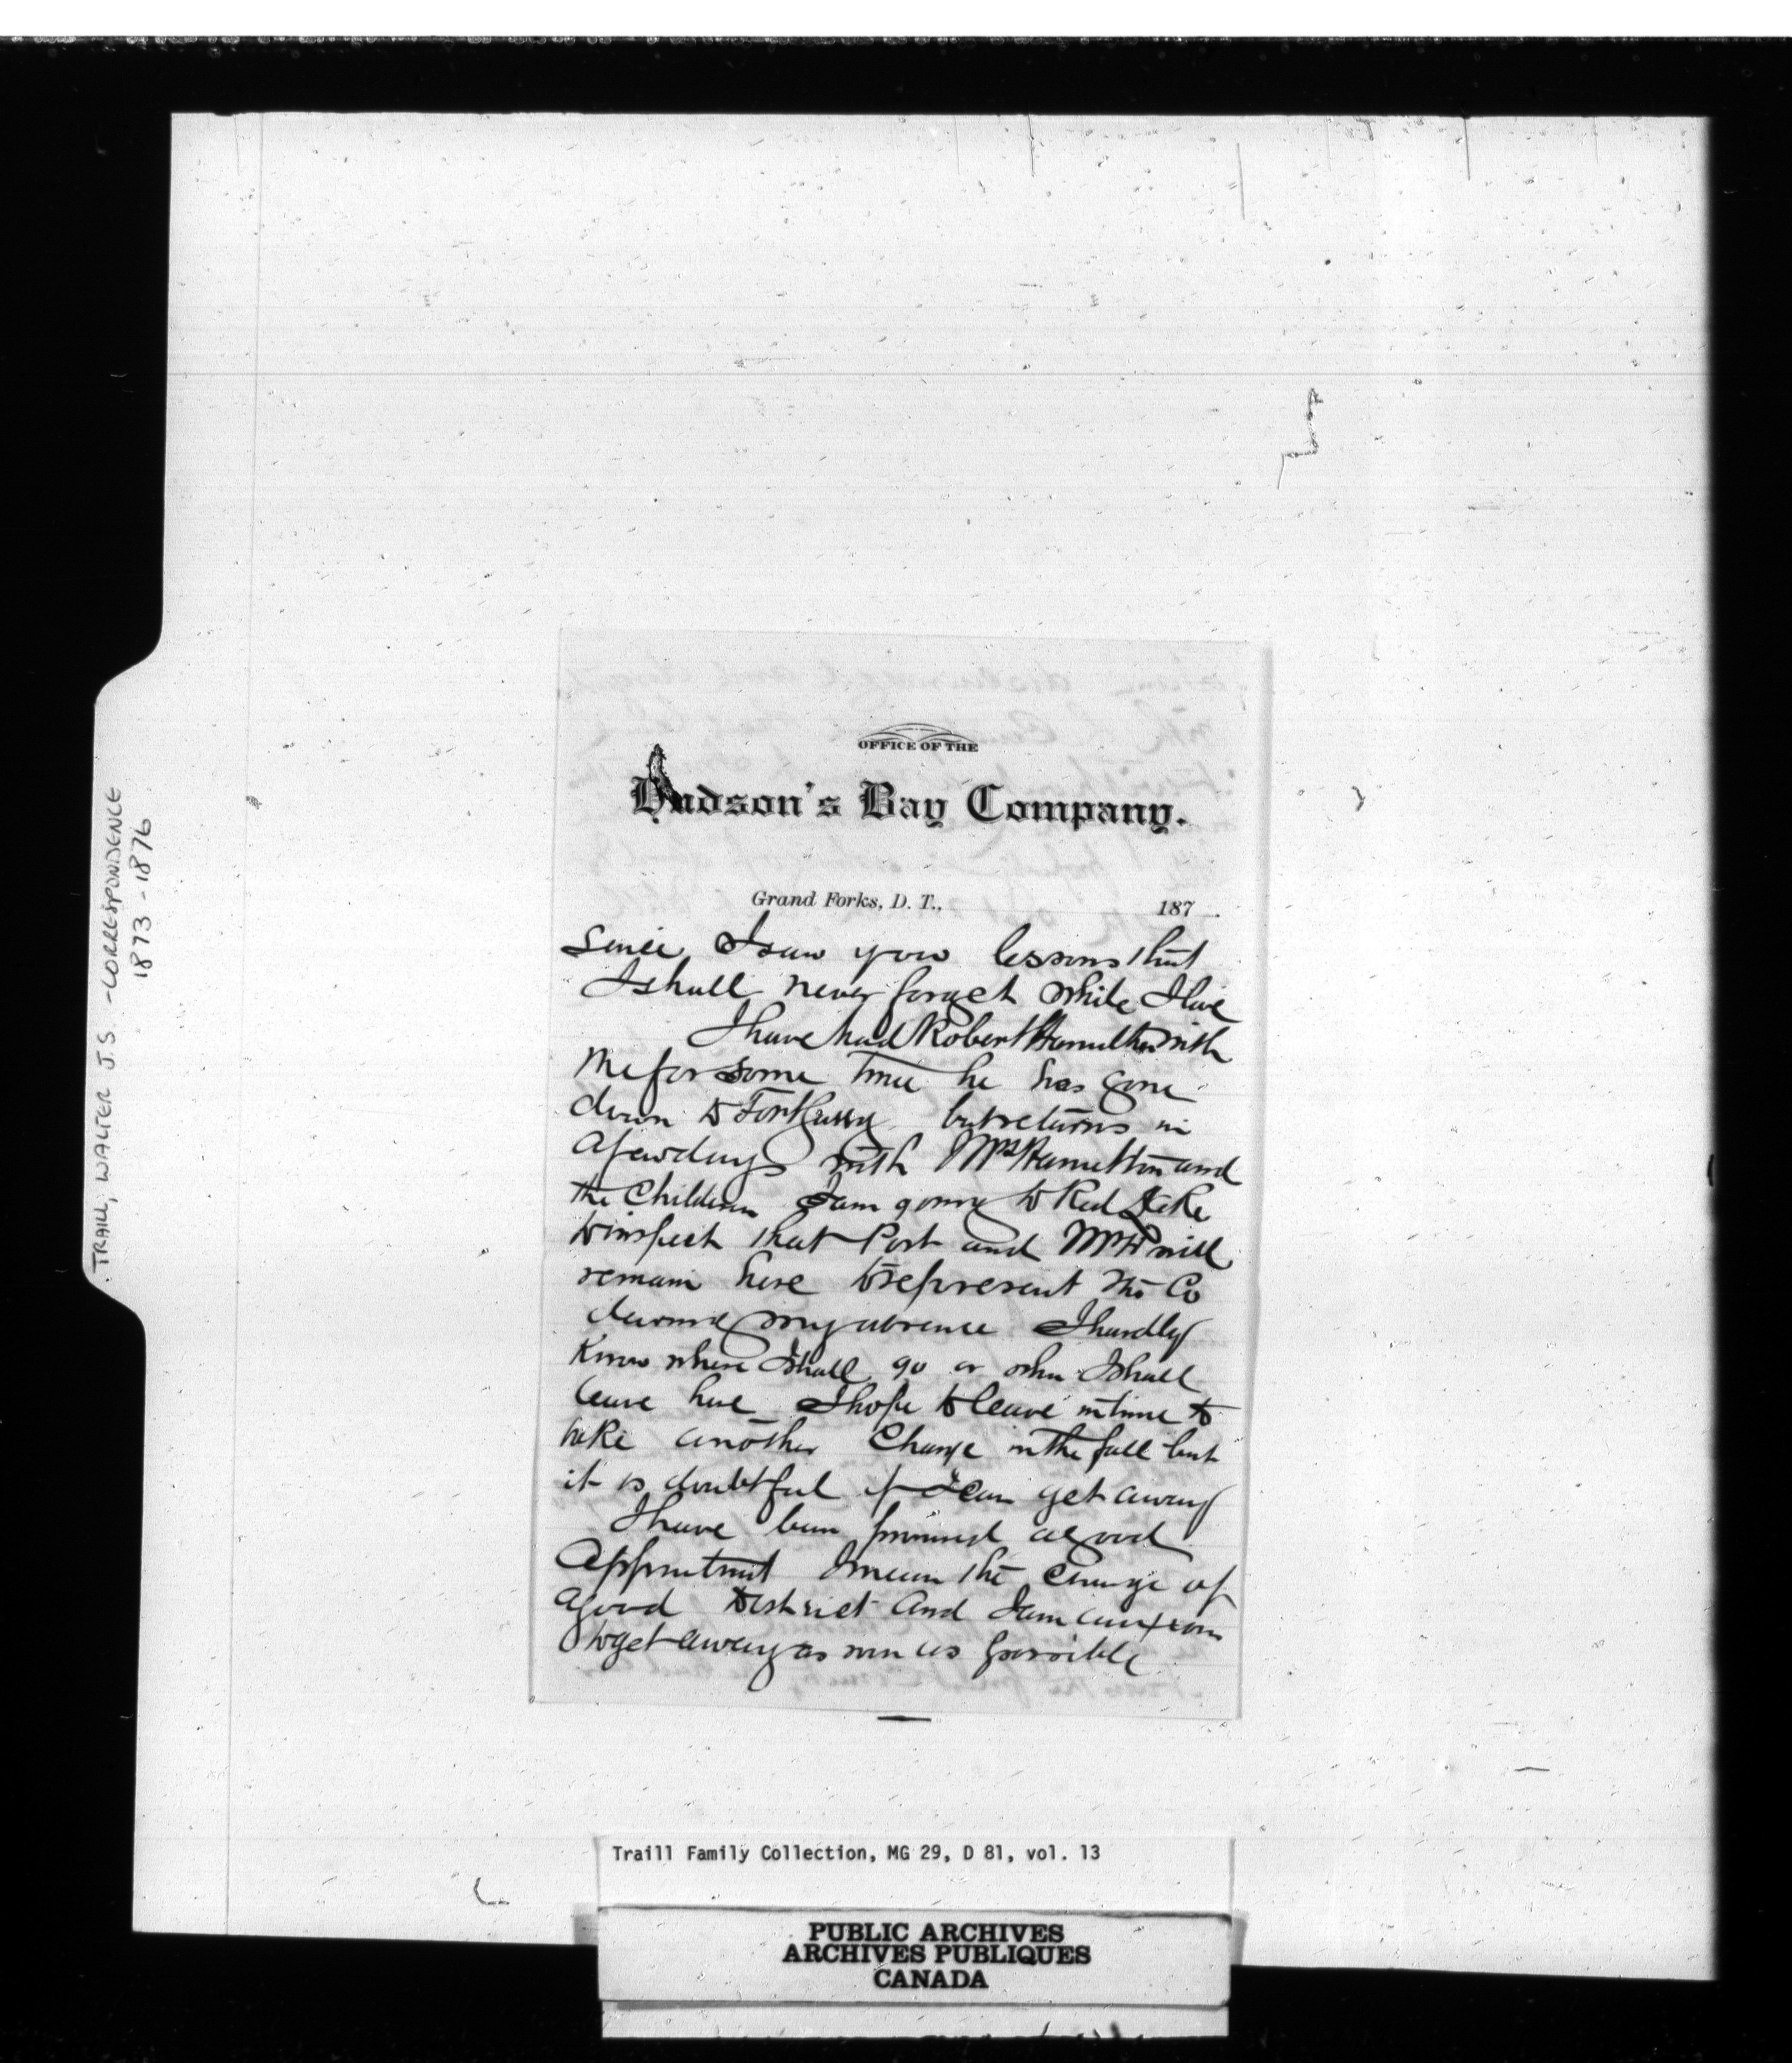 TRAILL, WALTER J.S. - CORRESPONDENCE
1873 - 1876
OFFICE OF THE
Hudson's Bay Company.
Grand Forks, D. T., 187 .
Since I saw you lessons that
I shall never forget while I live
I have had Robert Hamilton with
me for some time he has gone
down to Fort Garry but returns in
a few days with Mrs Hamilton and
the Children I am going to Red Lake
to inspect that Post and Mr H will
remain here to represent the Co
during my absence I hardly
Know where I shall go or when I shall
leave here I hope to leave in time to
take another Charge in the fall but
it is doubtful if I can get away
I have been promised a good
Appointment I mean the Charge of
a good District and I am anxious
to get away as soon as possible
Traill Family Collection, MG 29, D 81, vol. 13
PUBLIC ARCHIVES
ARCHIVES PUBLIQUES
CANADA